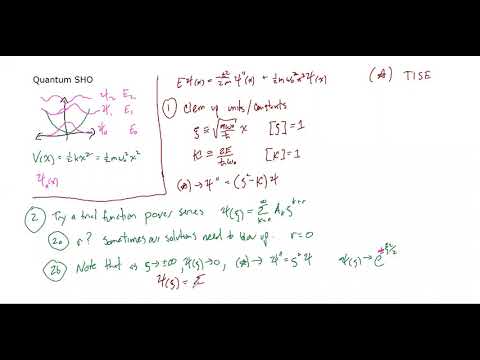 Quantum SHO
Ψ₂ E₂
Ψ₁ E₁
Ψ₀ E₀
V(x) = ½kx² = ½mω₀²x²
Ψₙ(x)
EΨ(x) = -ħ²/2m Ψ"(x) + ½mω₀²x²Ψ(x) (☆) TISE
① Clean up units/constants
ξ ≡ √(mω₀/ħ) x [ξ]=1
K ≡ 2E/ħω₀ [K]=1
(☆) → Ψ" = (ξ²-K)Ψ
② Try a trial function power series Ψ(ξ) = Σ Aₖ ξᵏ⁺ʳ
k=0
∞
2a r? Sometimes our solutions need to blow up. r=0
2b Note that as ξ→±∞, Ψ(ξ)→0, (☆)→ Ψ" = ξ²Ψ Ψ(ξ)→ e^(±ξ²/2)
Ψ(ξ) = Σ